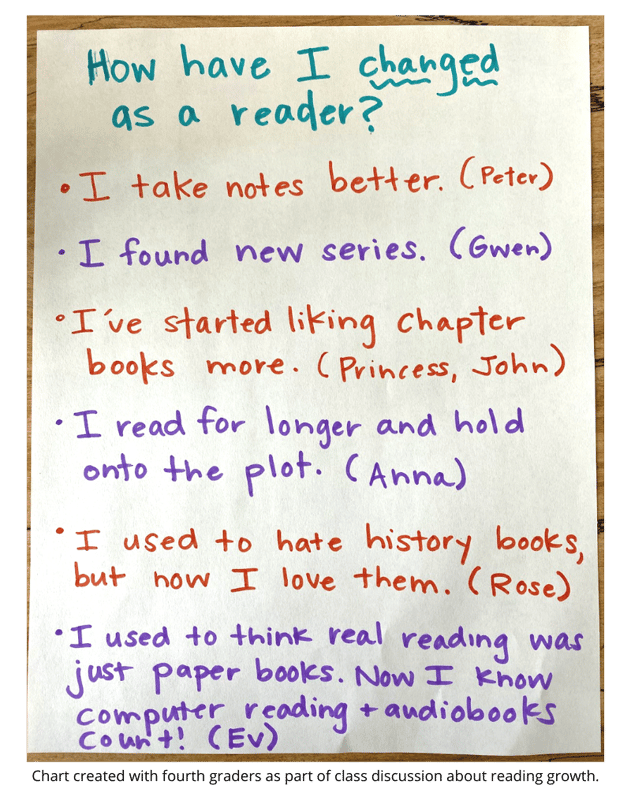 How have I changed
as a reader?
• I take notes better. (Peter)
• I found new series. (Gwen)
• I've started liking chapter
books more. (Princess, John)
• I read for longer and hold
onto the plot. (Anna)
• I used to hate history books,
but now I love them. (Rose)
• I used to think real reading was
just paper books. Now I know
computer reading + audiobooks
count! (Ev)
Chart created with fourth graders as part of class discussion about reading growth.